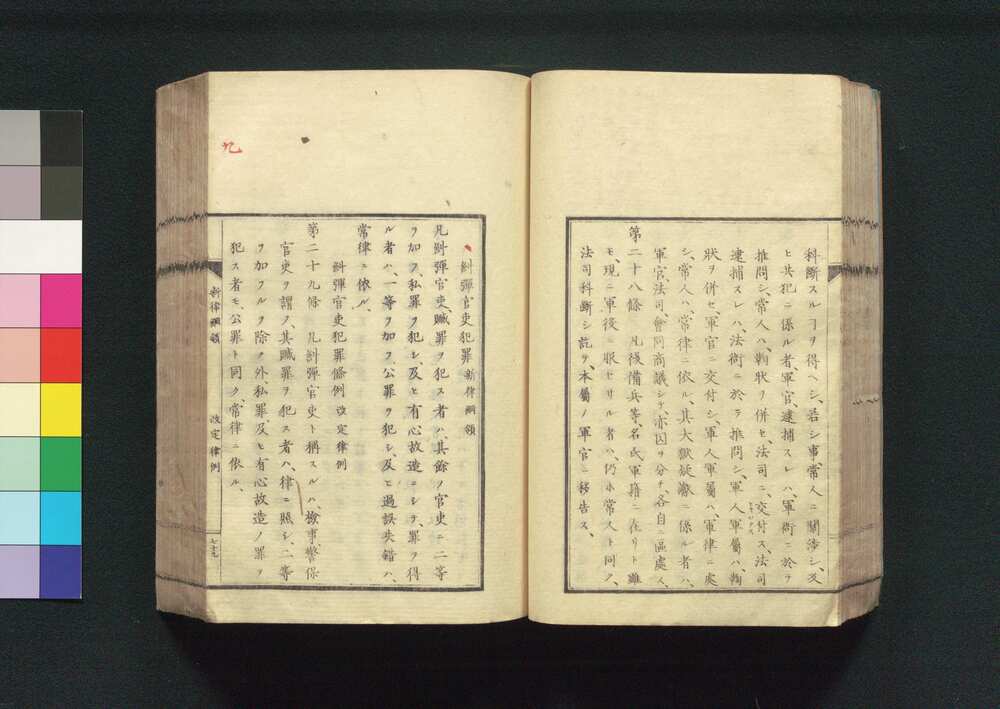 科斷スルヿヲ得ヘシ、若シ事常人ニ關涉シ、及
ヒ共犯ニ係ル者、軍官、逮捕スレハ、軍衙ニ於テ
推問シ、常人ハ、鞫狀ヲ併セ法司ニ、交付ス、法司
逮捕スレハ、法衙ニ於テ推問シ、軍人軍屬ハ、鞫
狀ヲ併セ、軍官ニ交付シ、軍人軍屬ハ、軍律ニ處
シ、常人ハ、常律ニ依ル、其大獄疑讞ニ係ル者ハ、
軍官法司、會同商議シテ、亦囚ヲ分チ、各自ニ區處ス、
第二十八條 凡後備兵等、名氏軍籍ニ在リト雖
モ、現ニ軍役ニ服セサル者ハ、仍ホ常人ト同ク、
法司科斷シ訖ヲ、本屬ノ軍官ニ移告ス、
糾彈官吏犯罪 新律綱領
凡糾彈官吏、贓罪ヲ犯ス者ハ、其餘ノ官吏ニ二等
ヲ加フ、私罪ヲ犯シ、及ヒ有心故造ニシテ、罪ヲ得
ル者ハ、一等ヲ加フ、公罪ヲ犯シ、及ヒ過誤失錯ハ、
常律ニ依ル、
糾彈官吏犯罪條例 改定律例
第二十九條 凡糾彈官吏ト稱スルハ、檢事警保
官吏ヲ謂フ、其贓罪ヲ犯ス者ハ、律ニ照シ、二等
ヲ加フルヲ除クノ外、私罪、及ヒ有心故造ノ罪ヲ
犯ス者モ、公罪ト同ク、常律ニ依ル、
新律綱領 改定律例
七十九